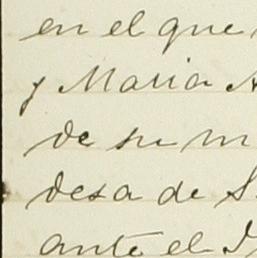 en el que
y Maria A
de su m
desa de S
ante el J